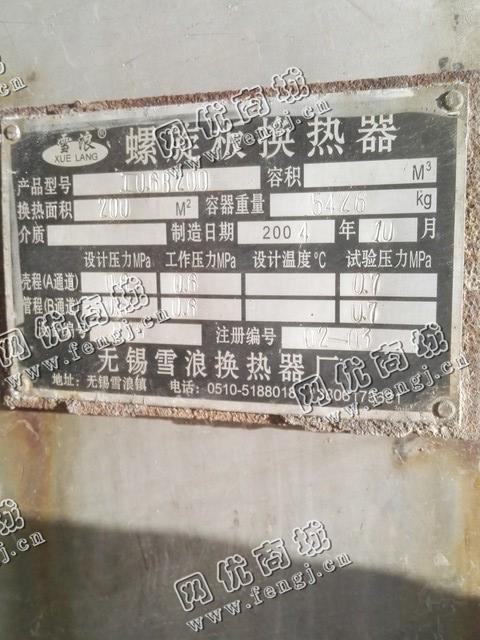 雪浪®
XUE LANG
螺旋板换热器
产品型号 I06B200 容积 M³
换热面积 200 M² 容器重量 5426 kg
介质 制造日期 2004 年 10 月
设计压力MPa 工作压力MPa 设计温度℃ 试验压力MPa
壳程(A通道) 0.6 0.7
管程(B通道) 0.6 0.7
注册编号 02-03
无锡雪浪换热器厂
地址：无锡雪浪镇 电话：0510-5188018
网优商城
www.fengj.cn
网优商城
www.fengj.cn
网优商城
www.fengj.cn
网优商城
www.fengj.cn